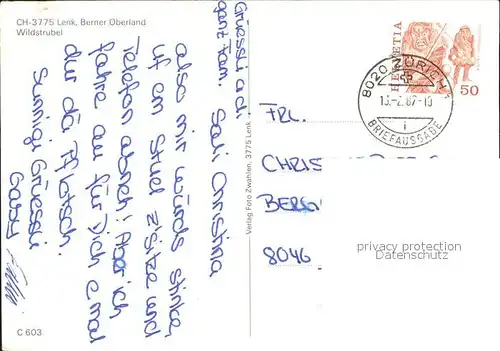 CH-3775 Lenk, Berner Oberland
Wildstrubel
Grüessli a di
ganz Fam.
Sali Christina
also mir würds stinke,
uf em Stuel z'sitze und
Telefon abneh! Aber ich
fahre au für Dich e mal
dur da Pflotsch.
Sunnigi Grüessli
Gaby
C 603
Verlag Foto Zwahlen, 3775 Lenk
HELVETIA
50
8020 ZÜRICH
BRIEFAUSGABE
FRL.
CHRIS
BERG
8046
privacy protection
watermark